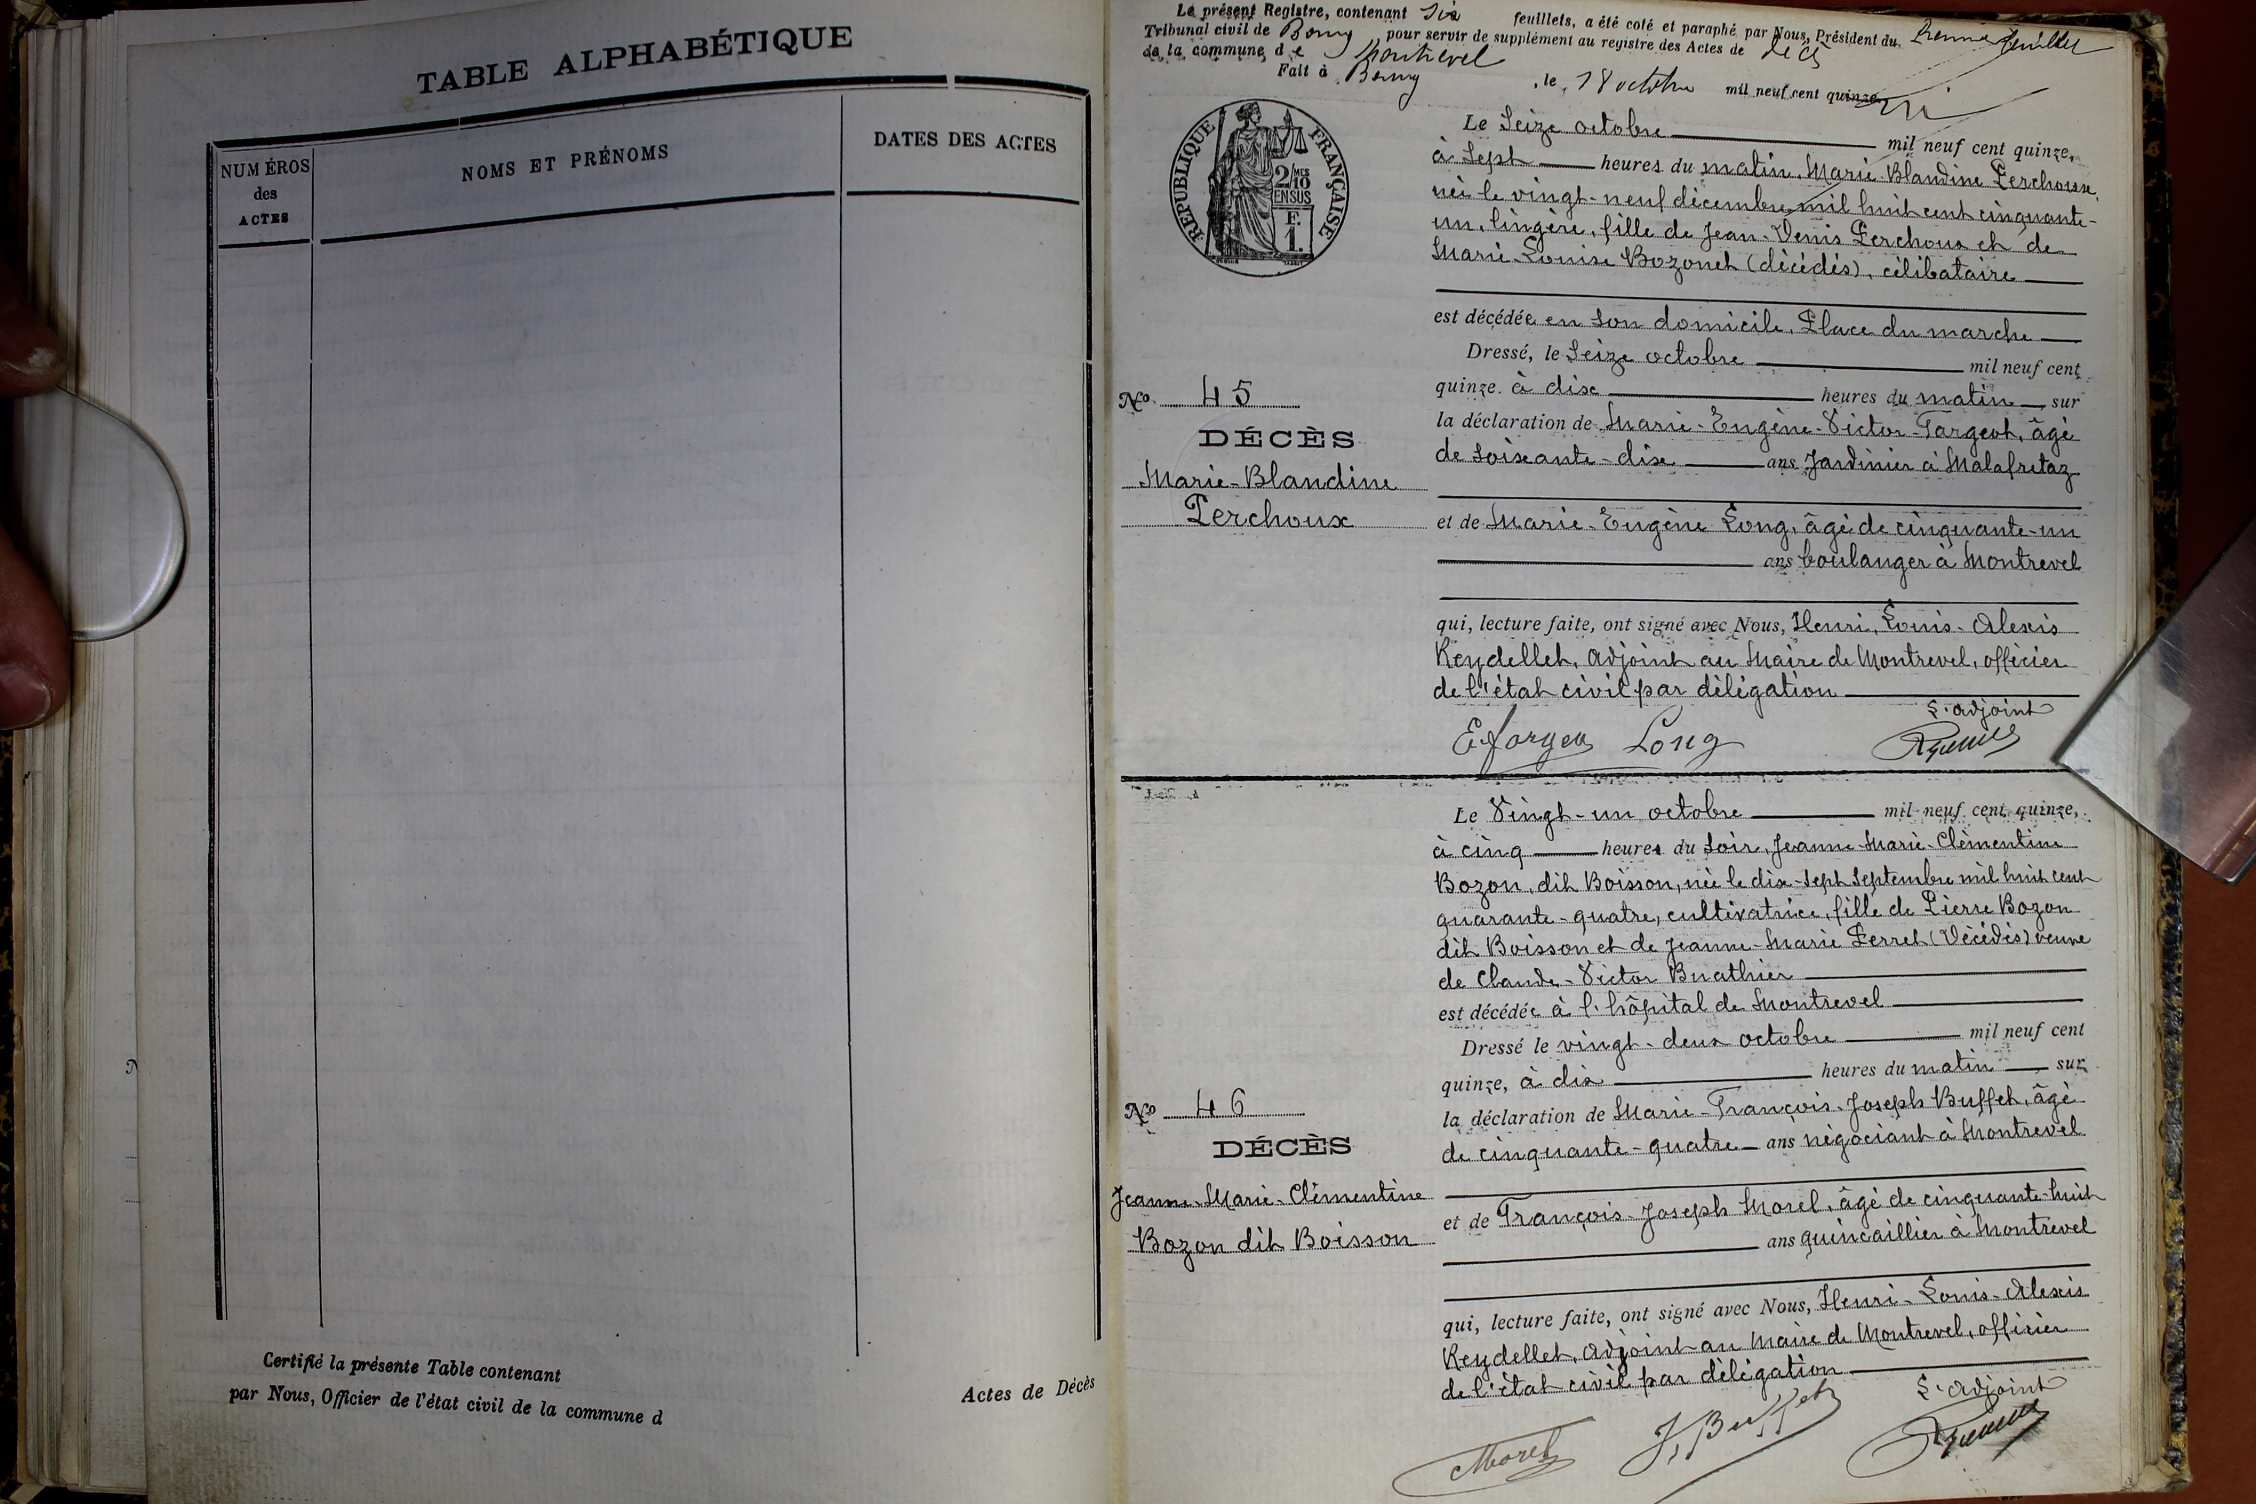 TABLE ALPHABÉTIQUE
NUMÉROS
des
ACTES
NOMS ET PRÉNOMS
DATES DES ACTES
Certifié la présente Table contenant
Actes de Décès
par Nous, Officier de l'état civil de la commune d
Le présent Registre, contenant six feuillets, a été coté et paraphé par Nous, Président du
Tribunal civil de Bourg pour servir de supplément au registre des Actes de décès
de la commune de Montrevel
Fait à Bourg, le 18 octobre mil neuf cent quinze
RÉPUBLIQUE FRANÇAISE
2/10
MES
EN SUS
F.
1.
Le Seize octobre mil neuf cent quinze,
à Sept heures du matin, Marie-Blandine Perchoux
née le vingt-neuf décembre mil huit cent cinquante-
un, lingère, fille de Jean-Denis Perchoux et de
Marie-Louise Bozonet (décédés), célibataire
est décédée en son domicile, Place du marche
Dressé, le Seize octobre mil neuf cent
quinze à dix heures du matin, sur
la déclaration de Marie-Eugène-Victor Fargeot, âgé
de soixante-dix ans Jardinier à Malafretaz
et de Marie-Eugène Long, âgé de cinquante-un
ans boulanger à Montrevel
qui, lecture faite, ont signé avec Nous, Henri, Louis-Alexis
Reydellet, adjoint au Maire de Montrevel, officier
de l'état civil par délégation
L'adjoint
Long
No 45
DÉCÈS
Marie-Blandine
Perchoux
Le Vingt-un octobre mil neuf cent quinze,
à cinq heures du soir, Jeanne-Marie-Clémentine
Bozon, dit Boisson, née le dix-sept Septembre mil huit cent
quarante-quatre, cultivatrice, fille de Pierre Bozon
dit Boisson et de Jeanne-Marie Perret (Décédés) veuve
de Claude-Victor Buathier
est décédée à l'hôpital de Montrevel
Dressé le vingt-deux octobre mil neuf cent
quinze, à dix heures du matin, sur
la déclaration de Marie-François-Joseph Buffet, âgé
de cinquante-quatre ans négociant à Montrevel
et de François-Joseph Morel, âgé de cinquante-huit
ans quincaillier à Montrevel
qui, lecture faite, ont signé avec Nous, Henri-Louis-Alexis
Reydellet, adjoint au Maire de Montrevel, officier
de l'état civil par délégation
L'adjoint
Morel
J. Buffet
No 46
DÉCÈS
Jeanne-Marie-Clémentine
Bozon dit Boisson